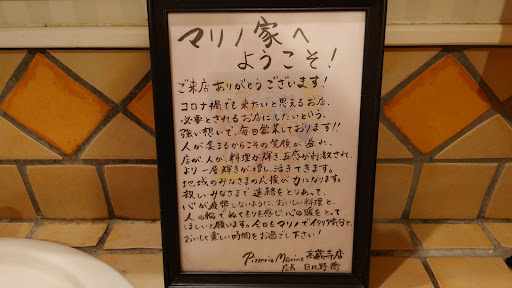 マリノ家へ
ようこそ!
ご来店ありがとうございます!
コロナ禍でも来たいと思えるお店、
必要とされるお店にしたいという、
強い想いで、毎日営業しております!!
人が集まるからこその笑顔が溢れ、
店が、人が、料理が輝き、五感が刺激され、
より一層輝きが増し、活きてきます。
地域のみなさまの応援が力になります。
親しいみなさまで連絡をとりあって、
心が疲弊しないように、おいしい料理と、
人の輪でぬくもりを感じ、心の暖をとって
ほしいと願います。今日もマリノでイタリア気分で、
おいしく楽しい時間をお過ごし下さい!
Pizzeria Marino 高蔵寺店
店長 日比野